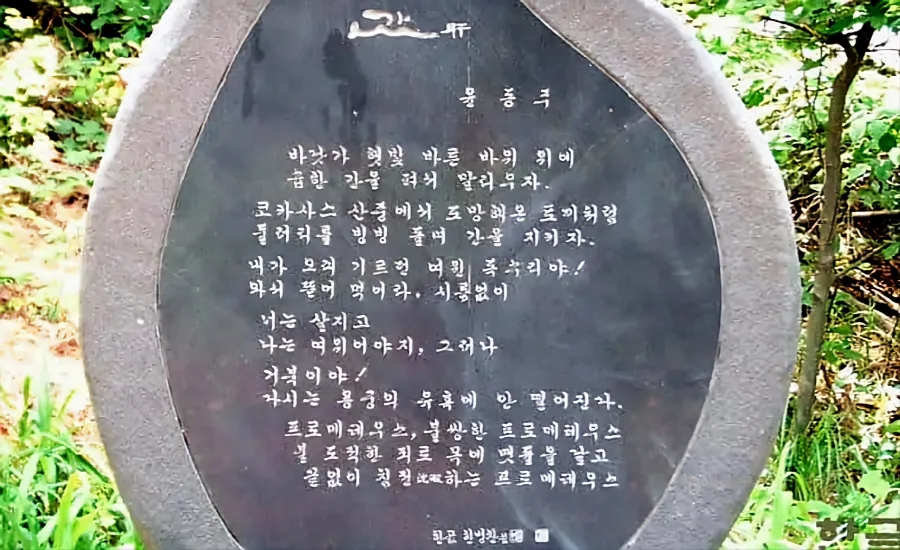 간 肝
윤 동 주
바닷가 햇빛 바른 바위 위에
습한 간을 펴서 말리우자.
코카사스 산중에서 도망해온 토끼처럼
둘러리를 빙빙 돌며 간을 지키자.
내가 오래 기르던 여윈 독수리야!
와서 뜯어 먹어라, 시름없이
너는 살지고
나는 여위어야지, 그러나
거북이야!
다시는 용궁의 유혹에 안 떨어진다.
프로메테우스, 불쌍한 프로메테우스
불 도적한 죄로 목에 맷돌을 달고
끝없이 침전沈澱하는 프로메테우스